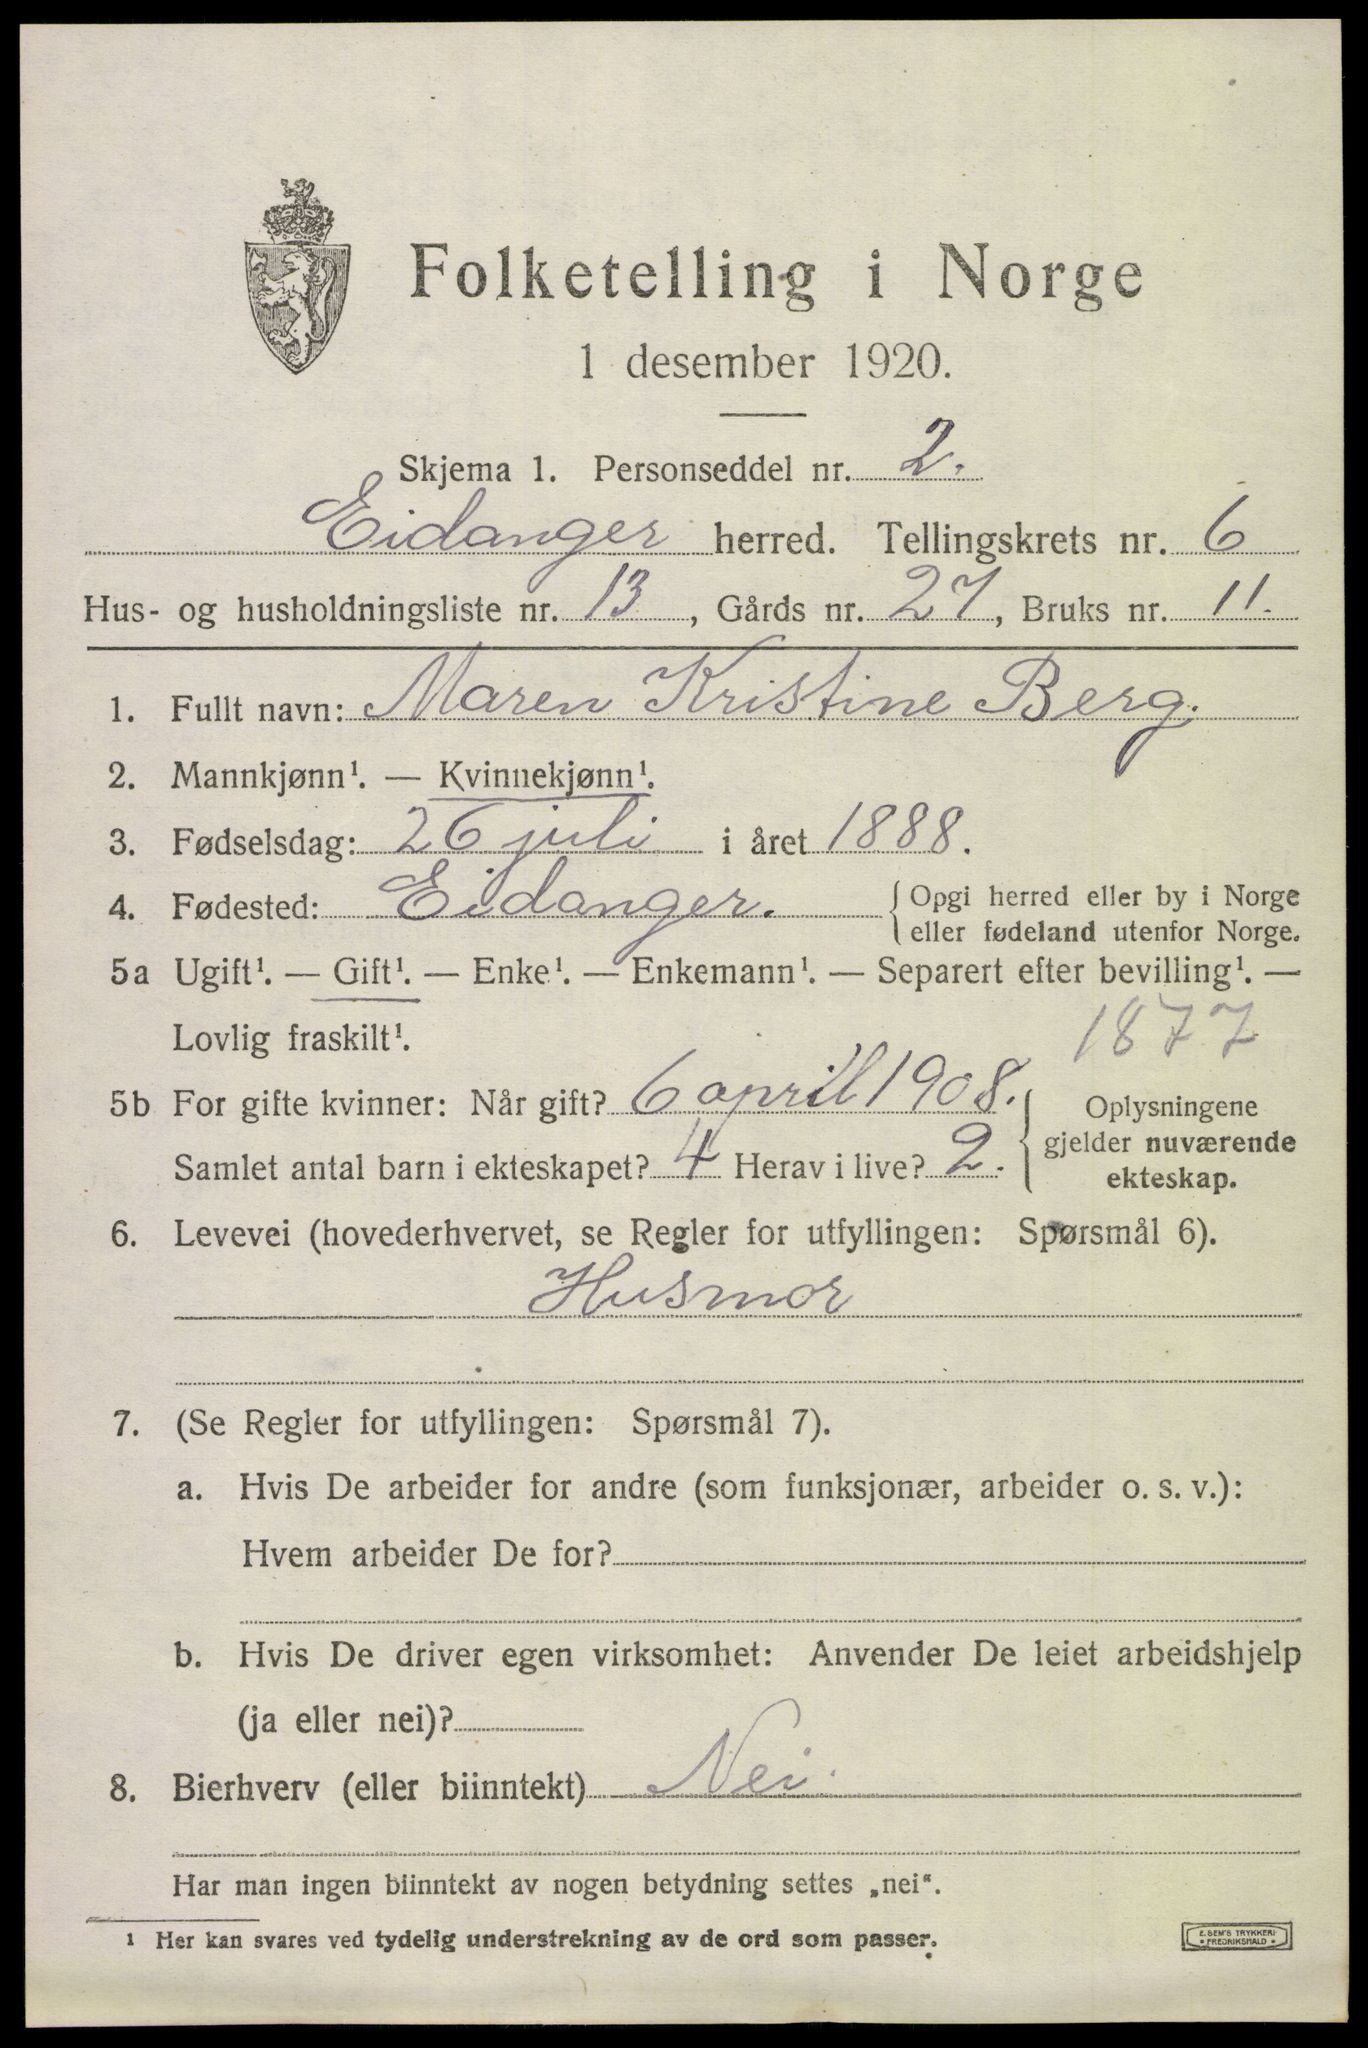 Folketelling i Norge
1 desember 1920.
Skjema 1. Personseddel nr. 2.
Eidanger herred. Tellingskrets nr. 6
Hus- og husholdningsliste nr. 13, Gårds nr. 27, Bruks nr. 11.
1. Fullt navn: Maren Kristine Berg.
2. Mannkjønn¹. — Kvinnekjønn¹.
3. Fødselsdag: 26 juli i året 1888.
4. Fødested: Eidanger. { Opgi herred eller by i Norge
eller fødeland utenfor Norge.
5a Ugift¹. — Gift¹. — Enke¹. — Enkemann¹. — Separert efter bevilling¹. —
Lovlig fraskilt¹. 1877
5b For gifte kvinner: Når gift? 6 april 1908. { Oplysningene
gjelder nuværende
Samlet antal barn i ekteskapet? 4 Herav i live? 2. ekteskap.
6. Levevei (hovederhvervet, se Regler for utfyllingen: Spørsmål 6).
Husmor
7. (Se Regler for utfyllingen: Spørsmål 7).
a. Hvis De arbeider for andre (som funksjonær, arbeider o. s. v.):
Hvem arbeider De for?
b. Hvis De driver egen virksomhet: Anvender De leiet arbeidshjelp
(ja eller nei)?
8. Bierhverv (eller biinntekt) Nei.
Har man ingen biinntekt av nogen betydning settes „nei“.
¹ Her kan svares ved tydelig understrekning av de ord som passer.
E. SEM'S TRYKKERI
• FREDRIKSHALD •